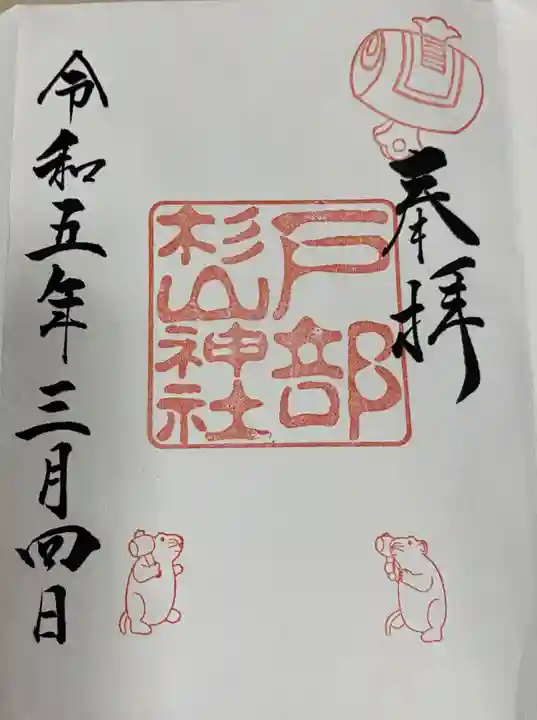 奉拝
戸部
杉山神社
令和五年三月四日